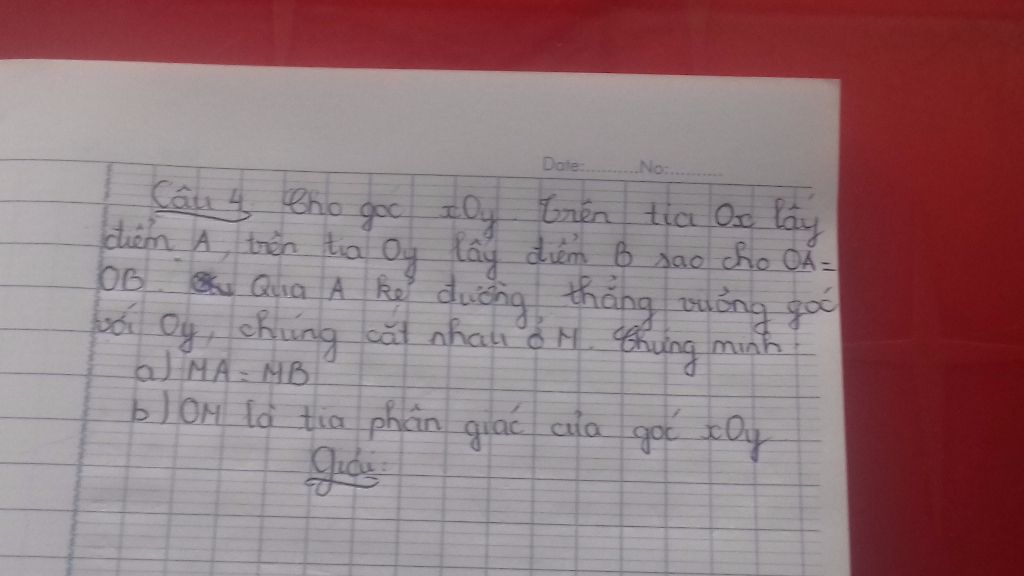 Date:...........No:...........
Câu 4 Cho góc xOy trên tia Ox lấy
điểm A, trên tia Oy lấy điểm B sao cho OA=
OB. Qua A kẻ đường thẳng vuông góc
với Oy, chúng cắt nhau ở M. Chứng minh
a) MA = MB
b) OM là tia phân giác của góc xOy
Giải: